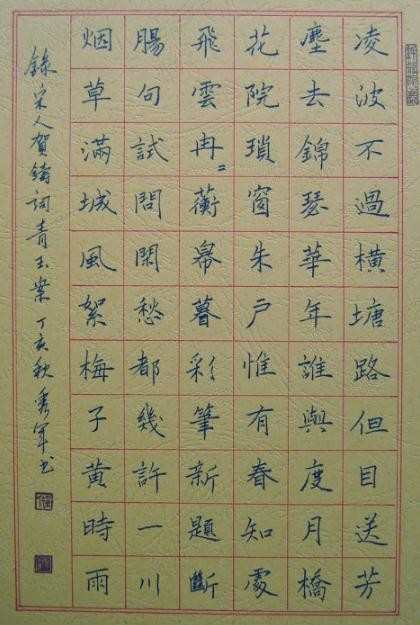 凌波不過橫塘路但目送芳
塵去錦瑟華年誰與度月橋
花院瑣窗朱户惟有春知處
飛雲冉〻蘅皋暮彩筆新題斷
腸句試問閑愁都幾許一川
烟草滿城風絮梅子黄時雨
錄宋人賀鑄詞青玉案丁亥秋秀军书